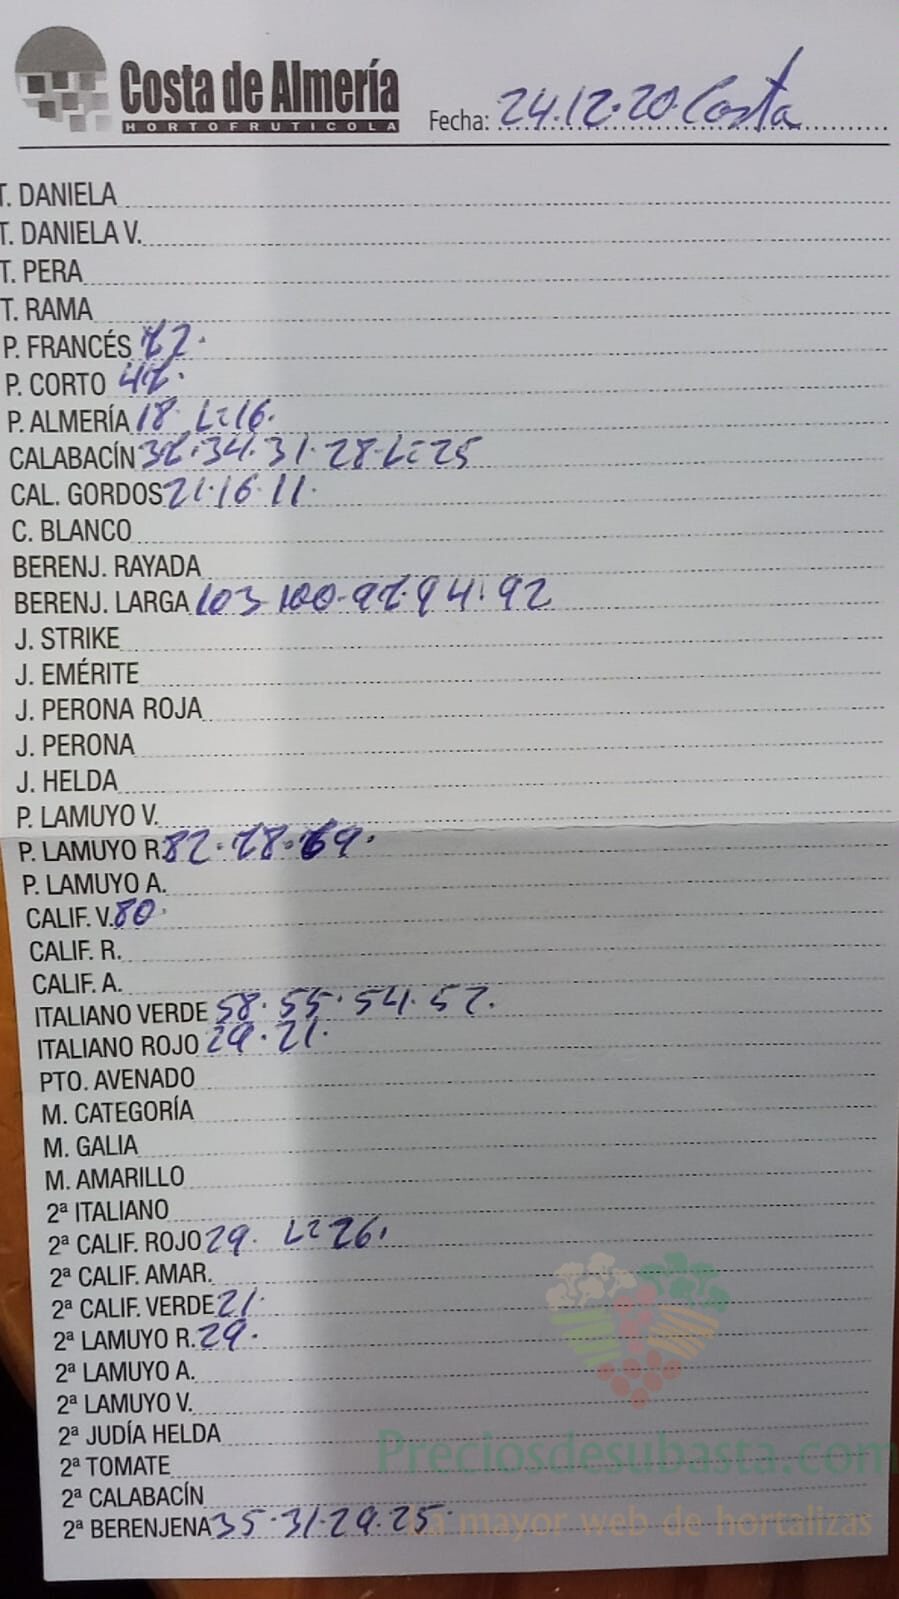 Costa de Almería
HORTOFRUTICOLA
Fecha: 24.12.20 Costa
T. DANIELA
T. DANIELA V.
T. PERA
T. RAMA
P. FRANCÉS 72.
P. CORTO 47.
P. ALMERÍA 18. L=16.
CALABACÍN 37.34.31.28.L=25
CAL. GORDOS 21.16.11.
C. BLANCO
BERENJ. RAYADA
BERENJ. LARGA 103 100.97.94.92
J. STRIKE
J. EMÉRITE
J. PERONA ROJA
J. PERONA
J. HELDA
P. LAMUYO V.
P. LAMUYO R. 82.78.69.
P. LAMUYO A.
CALIF. V. 80.
CALIF. R.
CALIF. A.
ITALIANO VERDE 58.55.54.52.
ITALIANO ROJO 29.21.
PTO. AVENADO
M. CATEGORÍA
M. GALIA
M. AMARILLO
2ª ITALIANO
2ª CALIF. ROJO 29. L=26.
2ª CALIF. AMAR.
2ª CALIF. VERDE 21.
2ª LAMUYO R. 29.
2ª LAMUYO A.
2ª LAMUYO V.
2ª JUDÍA HELDA
Preciosdesubasta.com
2ª TOMATE
2ª CALABACÍN
2ª BERENJENA 35.31.29.25.
La mayor web de hortalizas